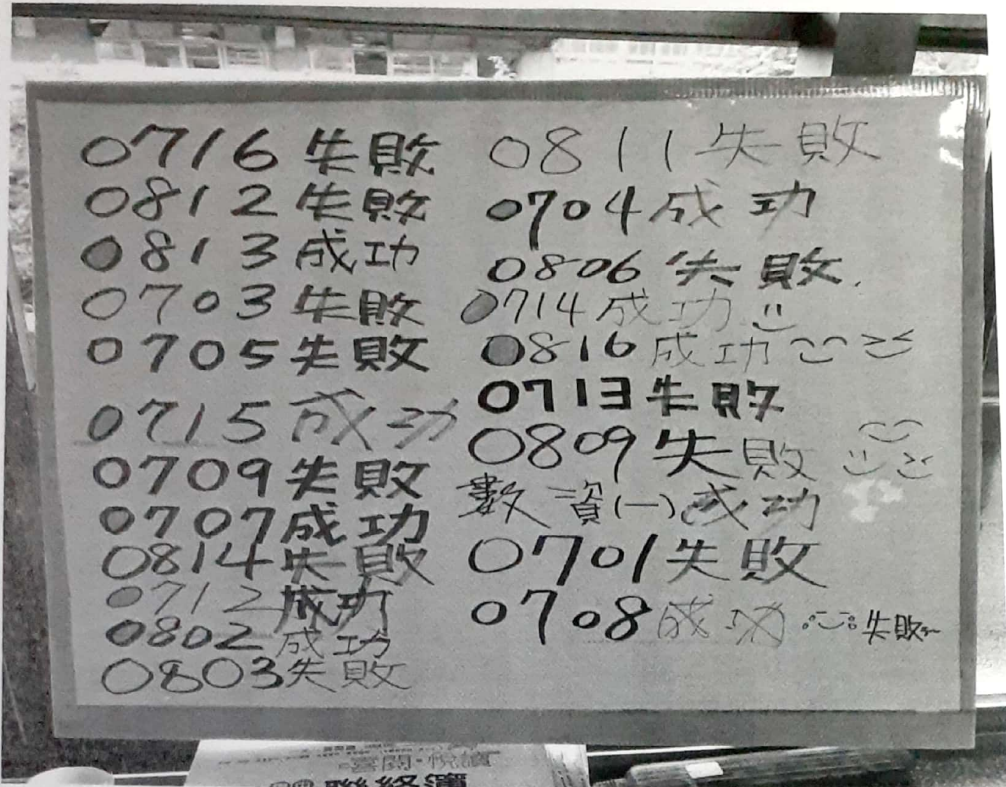 0716 失敗
0812 失敗
0813 成功
0703 失敗
0705 失敗
0715 成功
0709 失敗
0707 成功
0814 失敗
0712 成功
0802 成功
0803 失敗
0811 失敗
0704 成功
0806 失敗
0714 成功
0816 成功
0713 失敗
0809 失敗
數資(一) 成功
0701 失敗
0708 成功 失敗
悅讀
聯絡簿